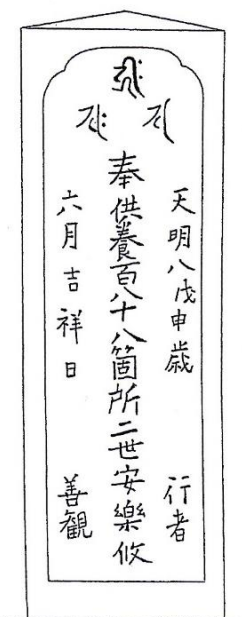 天明八戊申歳 行者
奉供養百八十八箇所二世安樂攸
六月吉祥日 善観